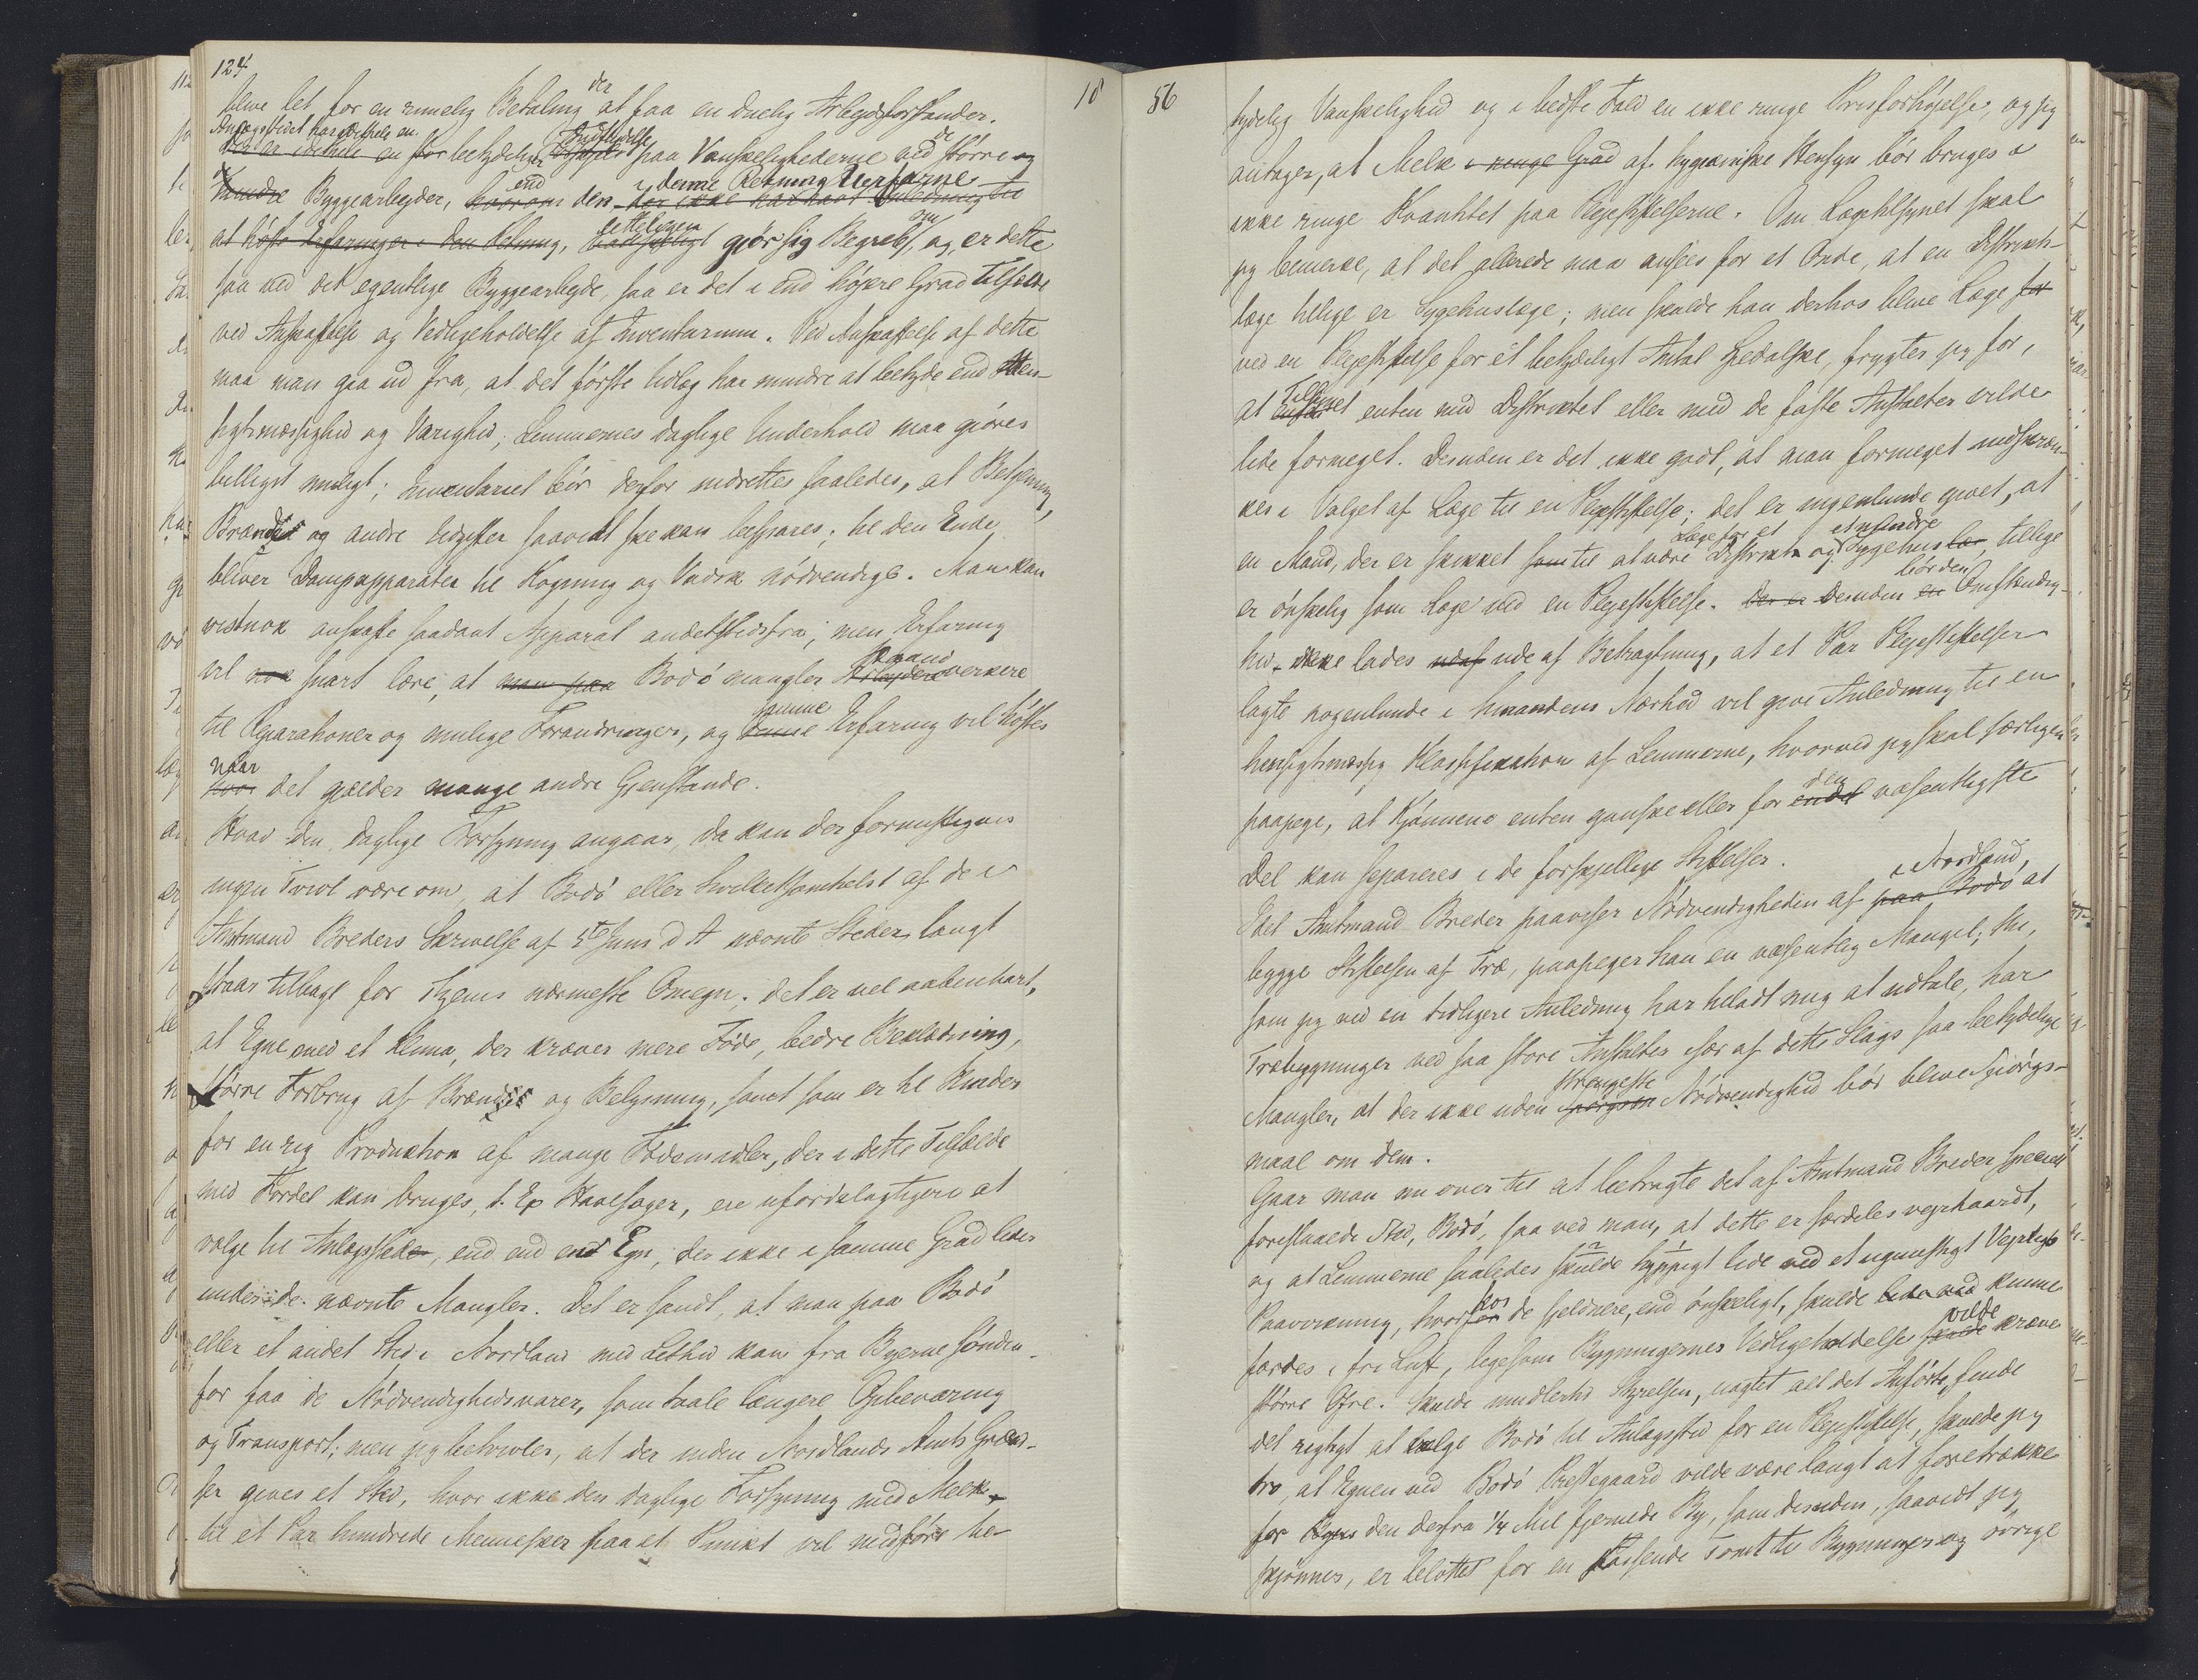 124
18
blive let for en rimelig Betaling der at faa en duelig Arbeidsforstander.
Anlægsstedet har desuden en
betydelig Indflydelse paa Vanskelighederne ved de större og
mindre Byggearbeyder, end den i denne Retning Uerfarne
at höste Erfaringer i den Retning, lettelig gjör sig Begreb om, og, er dette
saa ved det egentlige Byggearbeyde, saa er det i end höjere Grad Tilfælde
ved Anskaffelse og Vedligeholdelse af Inventarium. Ved Anskaffelse af dette
maa man gaa ud fra, at det förste Udlæg har mindre at betyde end Hen-
sigtsmæssighed og Varighed; Lemmernes daglige Underhold maa gjöres
billigst muligt; Inventariet bör derfor indrettes saaledes, at Betjening,
Brændsel og andre Udgifter saavidt ske kan bespares; til den Ende
bliver Dampapparater til Kogning og Vadsk nödvendige. Man kan
vistnok anskaffe saadant Apparat andetstedsfra; men Erfaring
vil nok snart lære, at man paa Bodö mangler Haandverkere
til Reparationer og mulige Forandringer, og samme Erfaring vil höstes
naar det gjælder mange andre Gjenstande.
Hvad den daglige Forsyning angaar, da kan der fornuftigvis
ingen Tvivl være om, at Bodö eller hvilketsomhelst af de i
Amtmand Breders Skrivelse af 5te Juni d A nævnte Steder langt
staar tilbage for Byens nærmeste Omegn. Det er vel aabenbart,
at Egne med et Klima, der kræver mere Föde, bedre Beklædning,
större Forbrug af Brændsel og Belysning, samt som er til Hinder
for en rig Produktion af mange Födemidler, der i dette Tilfælde
med Fordel kan bruges, t. Ex Havesager, ere ufordelagtigere at
vælge til Anlægssteder, end end end Egn, der ikke i samme Grad lider
under de nævnte Mangler. Det er sandt, at man paa Bodö
eller et andet Sted i Nordland med Lethed kan fra Byerne sönden-
for faa de Nödvendighedsvarer, som taale længere Opbevaring
og Transport; men jeg betvivler, at der inden Nordlands Amts Grænd-
ser gives et Sted, hvor ikke den daglige Forsyning med Melk
til et Par hundrede Mennesker paa et Punkt vil medföre be-
56
tydelig Vanskelighed og i bedste Fald en ikke ringe Prisforhöjelse, og jeg
antager, at Melk i ringe Grad af hygieiniske Hensyn bör bruges i
ikke ringe Kvantitet paa Plejestiftelserne. Om Lægetilsynet skal
jeg bemerke, at det allerede maa ansees for et Onde, at en Distrikts-
læge tillige er Sygehuslæge; men skulde han derhos blive Læge for
ved en Plejestiftelse for et betydeligt Antal Spedalske, frygter jeg for,
at Tilsynet enten med Distriktet eller med de faste Anstalter vilde
lide formeget. Desuden er det ikke godt, at man formeget indskræn-
kes i Valget af Læge til en Plejestiftelse; det er ingenlunde givet, at
en Mand, der er skikket som til at være Læge for et Distrikt og et mindre Sygehus, tillige
er önskelig som Læge ved en Plejestiftelse. Der er Desuden bör den Omstændig-
hed ikke lades ude af Betragtning, at et Par Plejestiftelser
lagte nogenlunde i hinandens Nærhed vil give Anledning til en
hensigtsmæssig Klassifikation af Lemmerne, hvorved jeg skal særligen
paapege, at Kjönnene enten ganske eller for den væsentligste
Del kan separeres i de forskjellige Stiftelser.
Idet Amtmand Breder paaviser Nödvendigheden af paa Bodö i Nordland, at
bygge Stiftelsen af Træ, paapeger han en væsentlig Mangel; thi,
som jeg ved en tidligere Anledning har tilladt mig at udtale, har
Træbygninger ved saa store Anstalter især af dette Slags saa betydelige
Mangler, at der ikke uden strengeste Nödvendighed bör blive Spörgs-
maal om dem.
Gaar man nu over til at betragte det af Amtmand Breder specielt
foreslaaede Sted, Bodö, saa ved man, at dette er særdeles vejrhaardt,
og at Lemmerne saaledes skulde hyppigt lide ved et ugunstigt Vejrligs
Paavirkning, hvorfor de sjeldnere, end önskeligt, skulde lide ved kunne
færdes i fri Luft, ligesom Bygningernes Vedligeholdelse vilde kræve
större Ofre. Skulde imidlertid Styrelsen, uagtet alt det Anförte, finde
det rigtigt at vælge Bodö til Anlægssted for en Plejestiftelse, skulde jeg
tro, at Egnen ved Bodö Prestegaard vilde være langt at foretrække
for den derfra 1/4 Mil fjernede By, som desuden, saavidt jeg
skjönner, er blottet for en passende Tomt til Bygninger og övrige